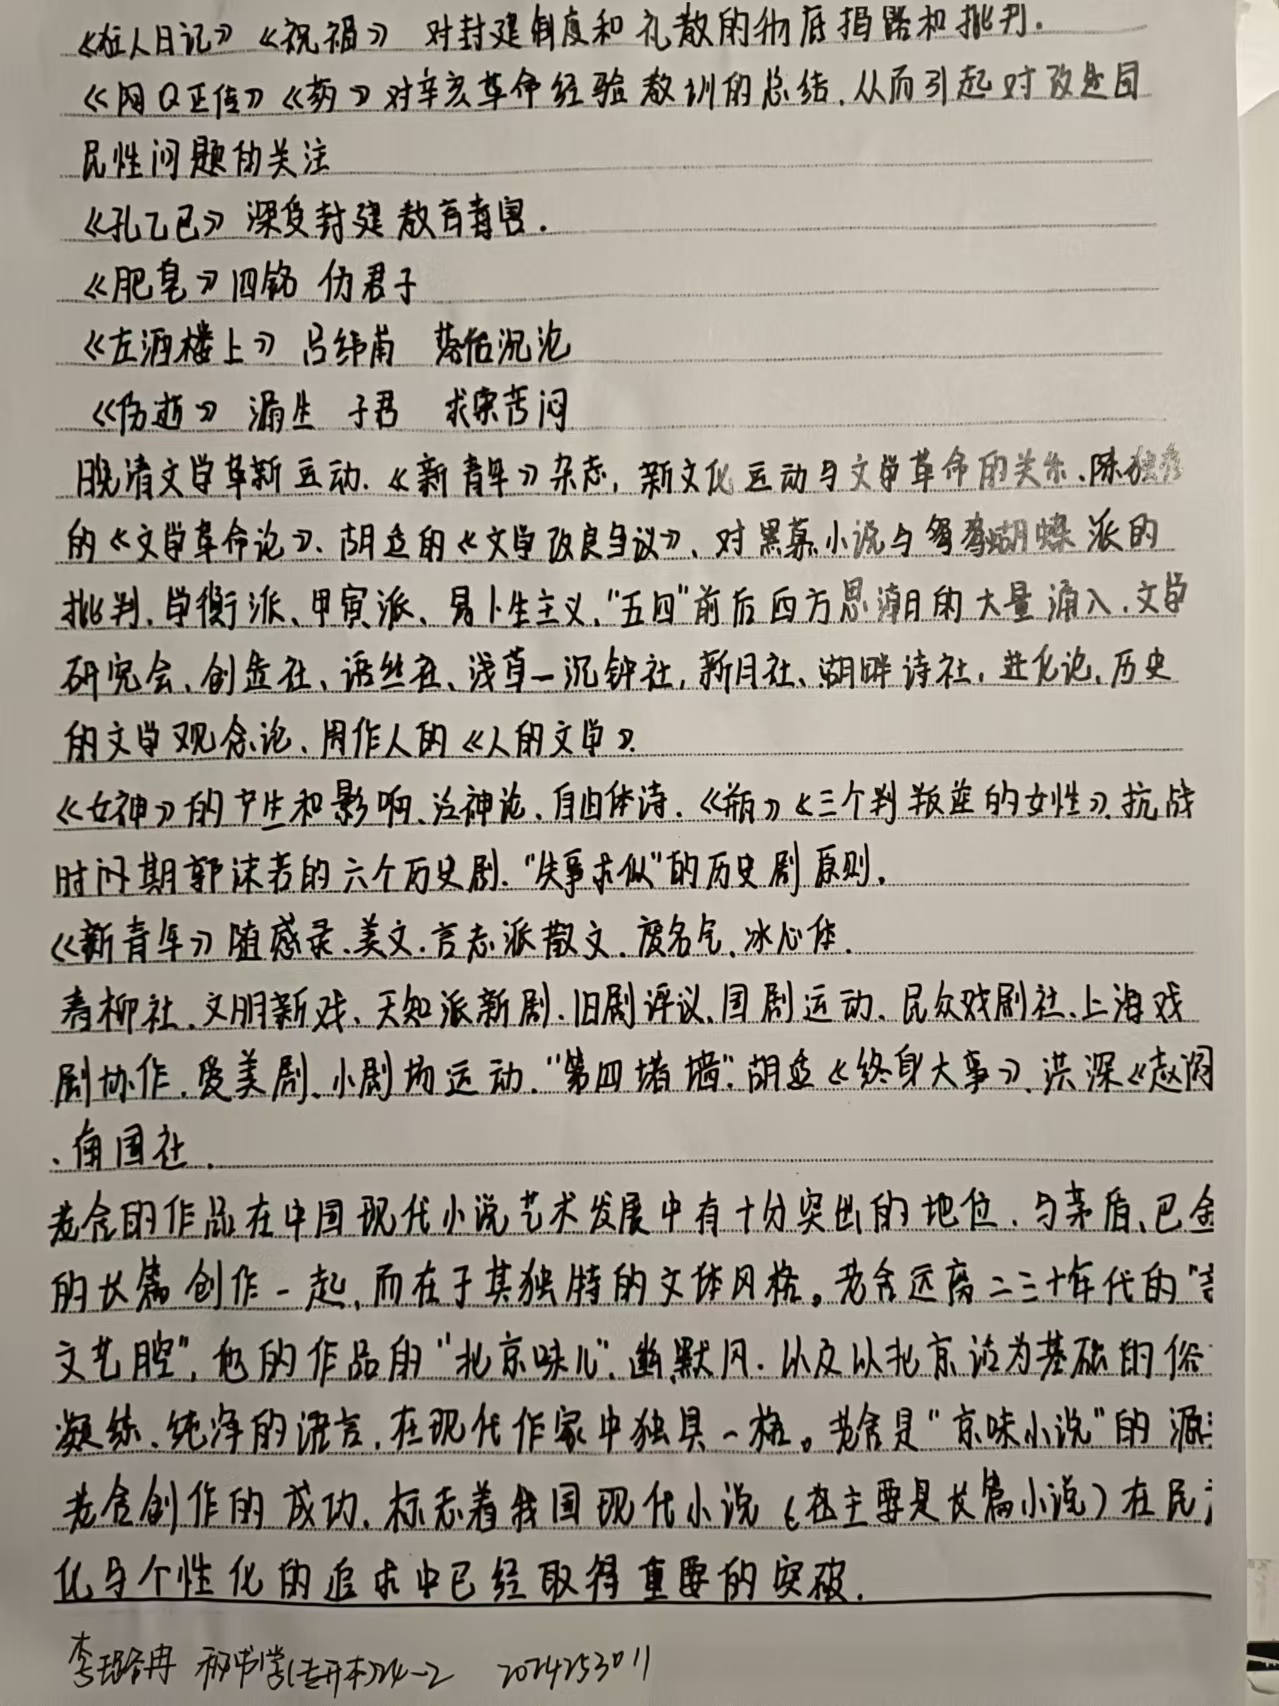 《狂人日记》《祝福》 对封建制度和礼教的彻底揭露和批判.
《阿Q正传》《药》对辛亥革命经验教训的总结,从而引起对改造国
民性问题的关注
《孔乙己》深受封建教育毒害.
《肥皂》四铭 伪君子
《在酒楼上》吕纬甫 落伍沉沦
《伤逝》 涓生 子君 求索苦闷
晚清文学革新运动.《新青年》杂志,新文化运动与文学革命的关系、陈独秀
的《文学革命论》、胡适的《文学改良刍议》、对黑幕小说与鸳鸯蝴蝶派的
批判、学衡派、甲寅派、易卜生主义,"五四"前后西方思潮的大量涌入、文学
研究会、创造社、语丝社、浅草一沉钟社,新月社、湖畔诗社,进化论、历史
的文学观念论、周作人的《人的文学》.
《女神》的产生和影响、泛神论、自由体诗.《瓶》《三个判叛逆的女性》、抗战
时间期郭沫若的六个历史剧."失事求似"的历史剧原则.
《新青年》随感录、美文.言志派散文.废名气、冰心体.
春柳社、文明新戏、天知派新剧.旧剧评议、国剧运动、民众戏剧社、上海戏
剧协作、爱美剧、小剧场运动."第四堵墙".胡适《终身大事》、洪深《赵阎
、南国社.
老舍的作品在中国现代小说艺术发展中有十分突出的地位、与茅盾、巴金
的长篇创作一起,而在于其独特的文体风格。老舍远离二三十年代的"
文艺腔",他的作品的"北京味儿"、幽默风.以及以北京话为基础的俗
凝练、纯净的语言,在现代作家中独具一格。老舍是"京味小说"的源
老舍创作的成功,标志着我国现代小说(在主要是长篇小说)在民
化与个性化的追求中已经取得重要的突破.
秘书学(专升本)24-2 2024253011